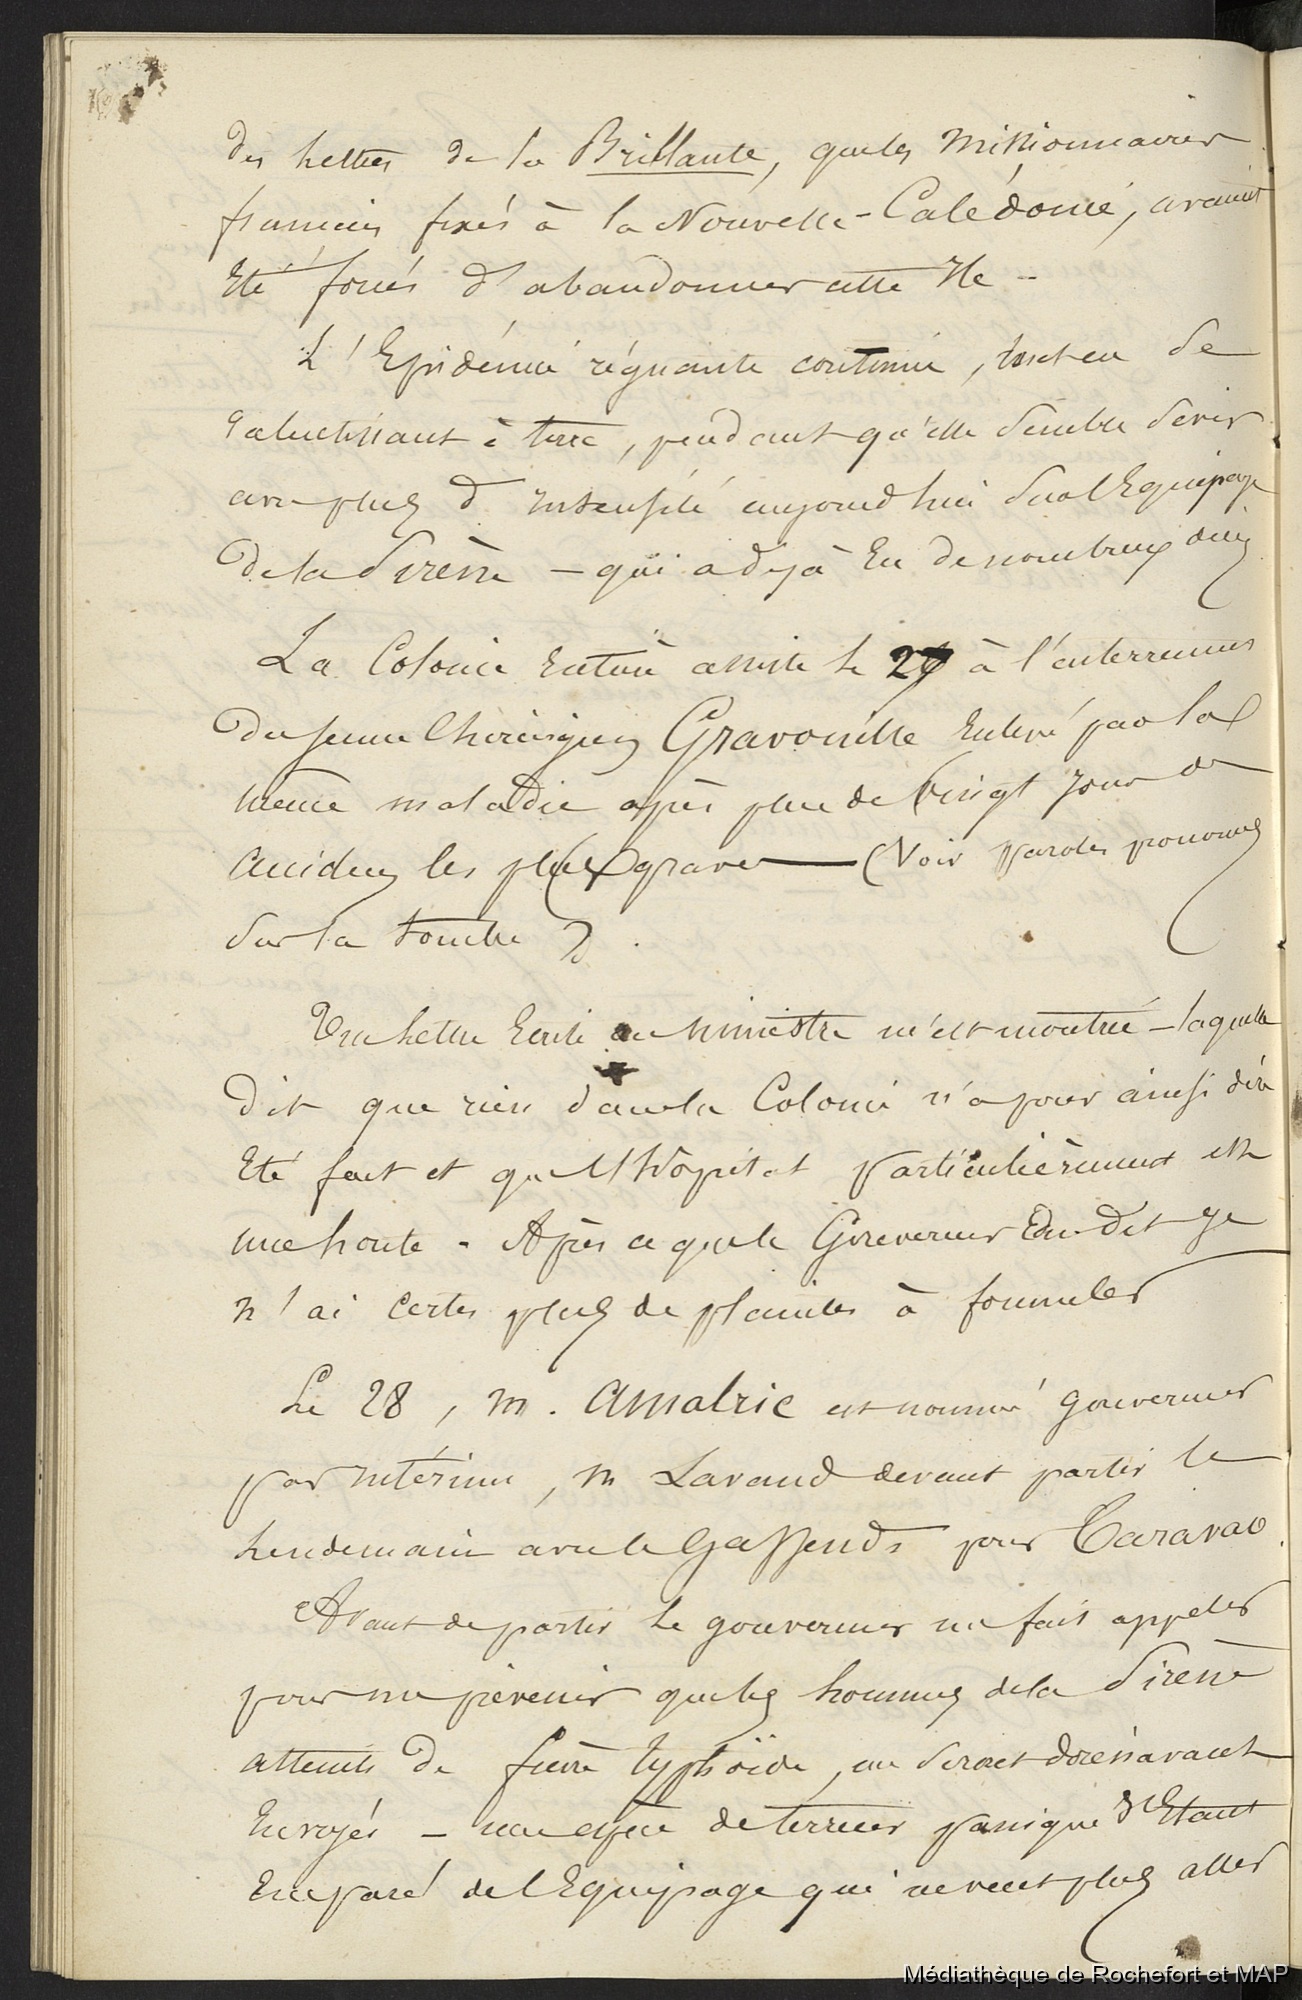 des lettres de la Brillante, que les Missionnaires
francais fixés à la Nouvelle-Calédonie, avaient
Eté forcés d'abandonner cette Ile --
L'Epidémie régnante continue, tout en se
ralentissant à terre, pendant qu'elle semble sévir
avec plus d'intensité aujourd'hui sur l'Equipage
de la Sirène — qui a déjà Eu de nombreux décès
La Colonie Entière assiste le 27 à l'enterrement
du jeune Chirurgien Gravouille Enlevé par la
même maladie après plus de vingt jours de
accidens les plus graves — (Voir paroles prononcées
sur la tombe ).
Une lettre Ecrite au ministre m'est montrée — laquelle
dit que rien dans la Colonie n'a pour ainsi dire
Eté fait et que l'hôpital particulièrement est
une honte. Après ce que le Gouverneur En dit je
n'ai certes plus de plaintes à formuler
Le 28, M. Amalric est nommé gouverneur
par intérim, M Lavaud devant partir le
lendemain avec le Gassendi pour Taravao.
Avant de partir le gouverneur me fait appeler
pour me prévenir que les hommes de la Sirène
atteints de fièvre typhoïde, me seront dorénavant
Envoyés — une espèce de terreur panique s'Etant
Emparé de l'Equipage qui ne veut plus aller
Médiathèque de Rochefort et MAP